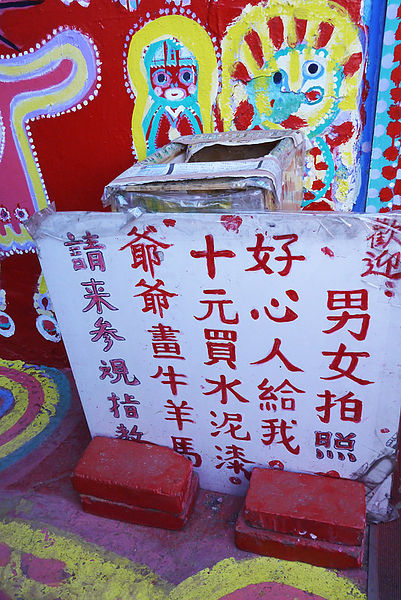 歡迎:
男女拍照
好心人給我
十元買水泥漆
爺爺畫牛羊馬
請來參視指教